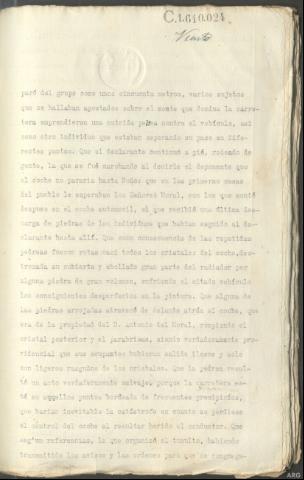 C.1.640.024
Veinte
paró del grupo como unos cincuenta metros, varios sujetos
que se hallaban apostados sobre el monte que domina la carre-
tera emprendieron una nutrida pedrea contra el vehículo, así
como otro individuo que estaban esperando su paso en dife-
rentes puntos. Que el declarante continuó a pié, rodeado de
gente, la que se fué marchando al decirle el deponente que
el coche no pararía hasta y que en las primeras casas
del pueblo le esperaban los Señores Moral, con los que montó
despues en el coche automovil, el que recibió una última des-
carga de piedras de los individuos que habian seguido al de-
clarante hasta allí. Que como consecuencia de las repetidas
pedreas fueron rotas casi todos los cristales del coche, des-
trozada su cubierta y abollado gran parte del radiador por
alguna piedra de gran volumen, sufriendo el citado vehículo
los consiguientes desperfectos en la pintura. Que alguna de
las piedras arrojadas atravesó de delante atrás el coche, que
era de la propiedad del D. Antonio del Moral, rompiendo el
cristal posterior y el parabrisas, siendo verdaderamente pro-
videncial que sus ocupantes hubieran salido ilesos y solo
con ligeros rasguños de los cristales. Que la pedrea resul-
tó un acto verdaderamente salvaje, porque la carretera es-
tá en aquellos puntos bordeada de frecuentes precipicios,
que harían inevitable la catástrofe en cuanto se perdiese
el control del coche al resultar herido el conductor. Que
segun referencias, la que organizó el tumulto, habiendo
transmitido los avisos y las ordenes para que se congrega-
ARG